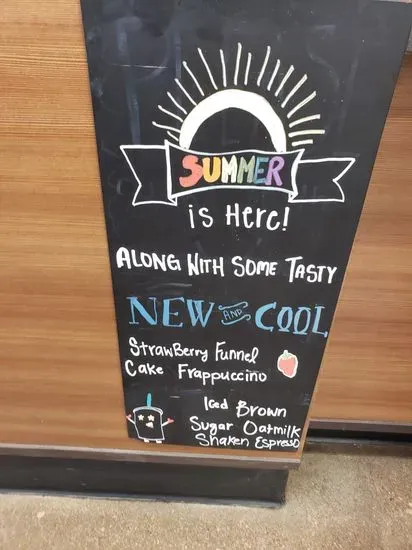 SUMMER
is Here!
ALONG WITH SOME TASTY
NEW AND COOL
StrawBerry Funnel
Cake Frappuccino
Iced Brown
Sugar Oatmilk
Shaken Espresso